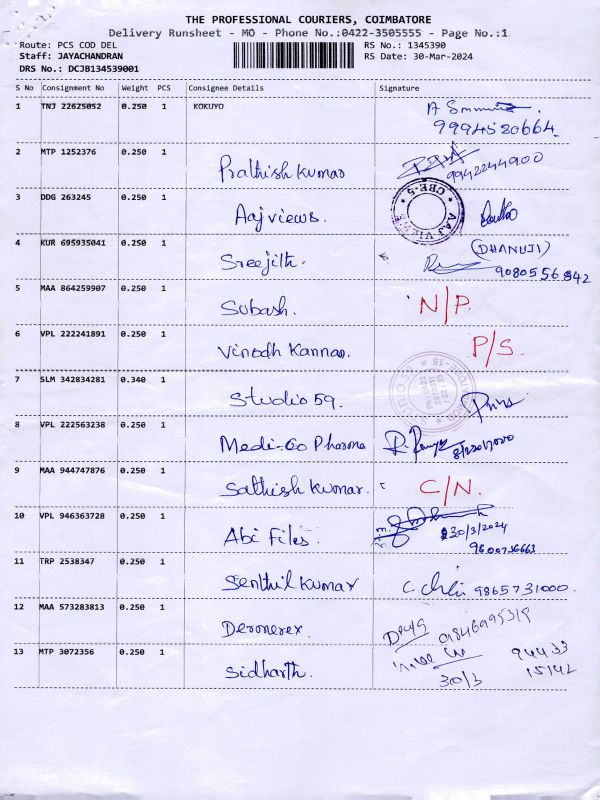 THE PROFESSIONAL COURIERS, COIMBATORE
Delivery Runsheet - MO - Phone No.:0422-3505555 - Page No.:1
Route: PCS COD DEL RS No.: 1345390
Staff: JAYACHANDRAN RS Date: 30-Mar-2024
DRS No.: DCJB134539001
S No Consignment No Weight PCS Consignee Details Signature
1 TNJ 22625052 0.250 1 KOKUYO
9994520664
2 MTP 1252376 0.250 1 Prathish kumar 9942244900
3 DDG 263245 0.250 1 Aaj views. CBE-5 AAJ VIEWS
4 KUR 695935041 0.250 1 Sreejith. (DHANUJI)
9080556342
5 MAA 864259907 0.250 1 Subash. N/P.
6 VPL 222241891 0.250 1 Vinodh Kannan. P/S.
7 SLM 342834281 0.340 1 Studio 59.
8 VPL 222563238 0.250 1 Medi-Go Pharma
9 MAA 944747876 0.250 1 Sathish kumar. C/N.
10 VPL 946363728 0.250 1 Abi Files. 30/3/2024
9600736663
11 TRP 2538347 0.250 1 Senthil kumar 9865731000.
12 MAA 573283813 0.250 1 Deronerex.
13 MTP 3072356 0.250 1 Sidharth. 94433
15142
30/3